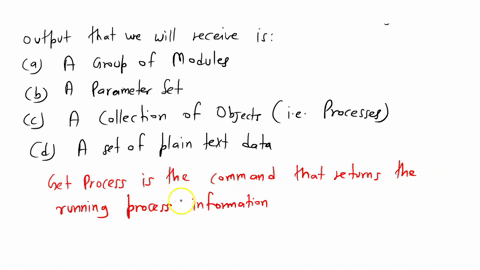 output that we will receive is:
(a) A Group of Modules
(b) A Parameter Set
(c) A Collection of Objects (i.e. Processes)
(d) A set of plain text data
Get Process is the command that returns the
running process information